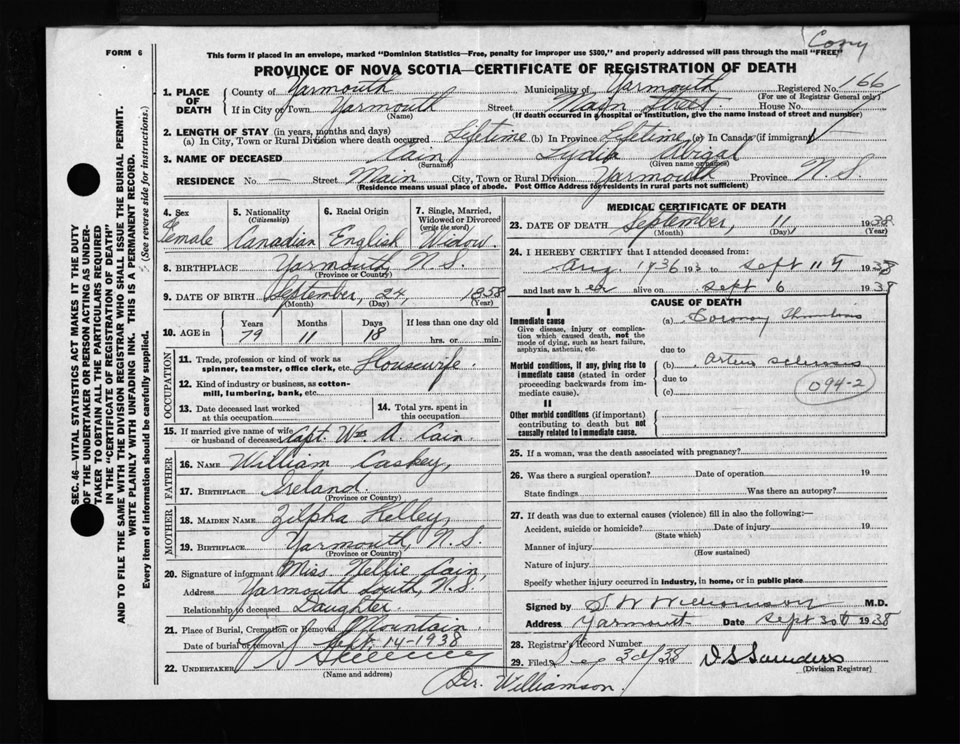 Copy
FORM 6
This form if placed in an envelope, marked "Dominion Statistics—Free, penalty for improper use $300," and properly addressed will pass through the mail "FREE"
PROVINCE OF NOVA SCOTIA—CERTIFICATE OF REGISTRATION OF DEATH
1. PLACE OF DEATH County of Yarmouth Municipality of Yarmouth Registered No. 66
(For use of Registrar General only)
If in City or Town Yarmouth Street Main Street House No.
(Name) (If death occurred in a hospital or institution, give the name instead of street and number)
2. LENGTH OF STAY (in years, months and days)
(a) In City, Town or Rural Division where death occurred Lifetime (b) In Province Lifetime (c) In Canada (if immigrant)
3. NAME OF DECEASED Cain Lydia Abigal
(Surname) (Given name or names)
RESIDENCE No. — Street Main City, Town or Rural Division Yarmouth Province N.S.
(Residence means usual place of abode. Post Office Address for residents in rural parts not sufficient)
4. Sex
Female
5. Nationality
(Citizenship)
Canadian
6. Racial Origin
English
7. Single, Married, Widowed or Divorced
(write the word)
Widow.
8. BIRTHPLACE Yarmouth, N.S.
(Province or Country)
9. DATE OF BIRTH September, 24, 1858
(Month) (Day) (Year)
10. AGE in Years Months Days If less than one day old
79 11 18 hrs. or min.
OCCUPATION
11. Trade, profession or kind of work as spinner, teamster, office clerk, etc. Housewife.
12. Kind of industry or business, as cotton-mill, lumbering, bank, etc.
13. Date deceased last worked at this occupation
14. Total yrs. spent in this occupation
15. If married give name of wife or husband of deceased Capt. Wm A. Cain.
FATHER
16. NAME William Caskey,
17. BIRTHPLACE Ireland.
(Province or Country)
MOTHER
18. MAIDEN NAME Zilpha Kelley,
19. BIRTHPLACE Yarmouth, N.S.
(Province or Country)
20. Signature of informant Miss Nellie Cain,
Address Yarmouth South, N.S.
Relationship to deceased Daughter.
21. Place of Burial, Cremation or Removal Mountain
Date of burial or removal Sept. 14-1938
22. UNDERTAKER
(Name and address)
Dr. Williamson.
MEDICAL CERTIFICATE OF DEATH
23. DATE OF DEATH September, 11, 1938
(Month) (Day) (Year)
24. I HEREBY CERTIFY that I attended deceased from
Aug. 1936 193 to Sept 11 1938
and last saw her alive on Sept 6 1938
CAUSE OF DEATH
I
Immediate cause
Give disease, injury or complication which caused death, not the mode of dying, such as heart failure, asphyxia, asthenia, etc.
(a) Coronary Thrombosis
due to
Morbid conditions, if any, giving rise to immediate cause (stated in order proceeding backwards from immediate cause)
(b) Arterio sclerosis
due to
(c)
094-2
II
Other morbid conditions (if important) contributing to death but not causally related to immediate cause.
25. If a woman, was the death associated with pregnancy?
26. Was there a surgical operation? Date of operation 19
State findings Was there an autopsy?
27. If death was due to external causes (violence) fill in also the following:—
Accident, suicide or homicide? Date of injury 19
(State which)
Manner of injury
(How sustained)
Nature of injury
Specify whether injury occurred in industry, in home, or in public place
Signed by S W Williamson M.D.
Address Yarmouth Date Sept 30 1938
28. Registrar's Record Number
29. Filed 30/38 D S Saunders
(Division Registrar)
SEC. 46—VITAL STATISTICS ACT MAKES IT THE DUTY
OF THE UNDERTAKER OR PERSON ACTING AS UNDER-
TAKER TO OBTAIN ALL THE PARTICULARS REQUIRED
IN THE "CERTIFICATE OF REGISTRATION OF DEATH"
AND TO FILE THE SAME WITH THE DIVISION REGISTRAR WHO SHALL ISSUE THE BURIAL PERMIT.
WRITE PLAINLY WITH UNFADING INK. THIS IS A PERMANENT RECORD.
Every item of information should be carefully supplied. (See reverse side for instructions.)